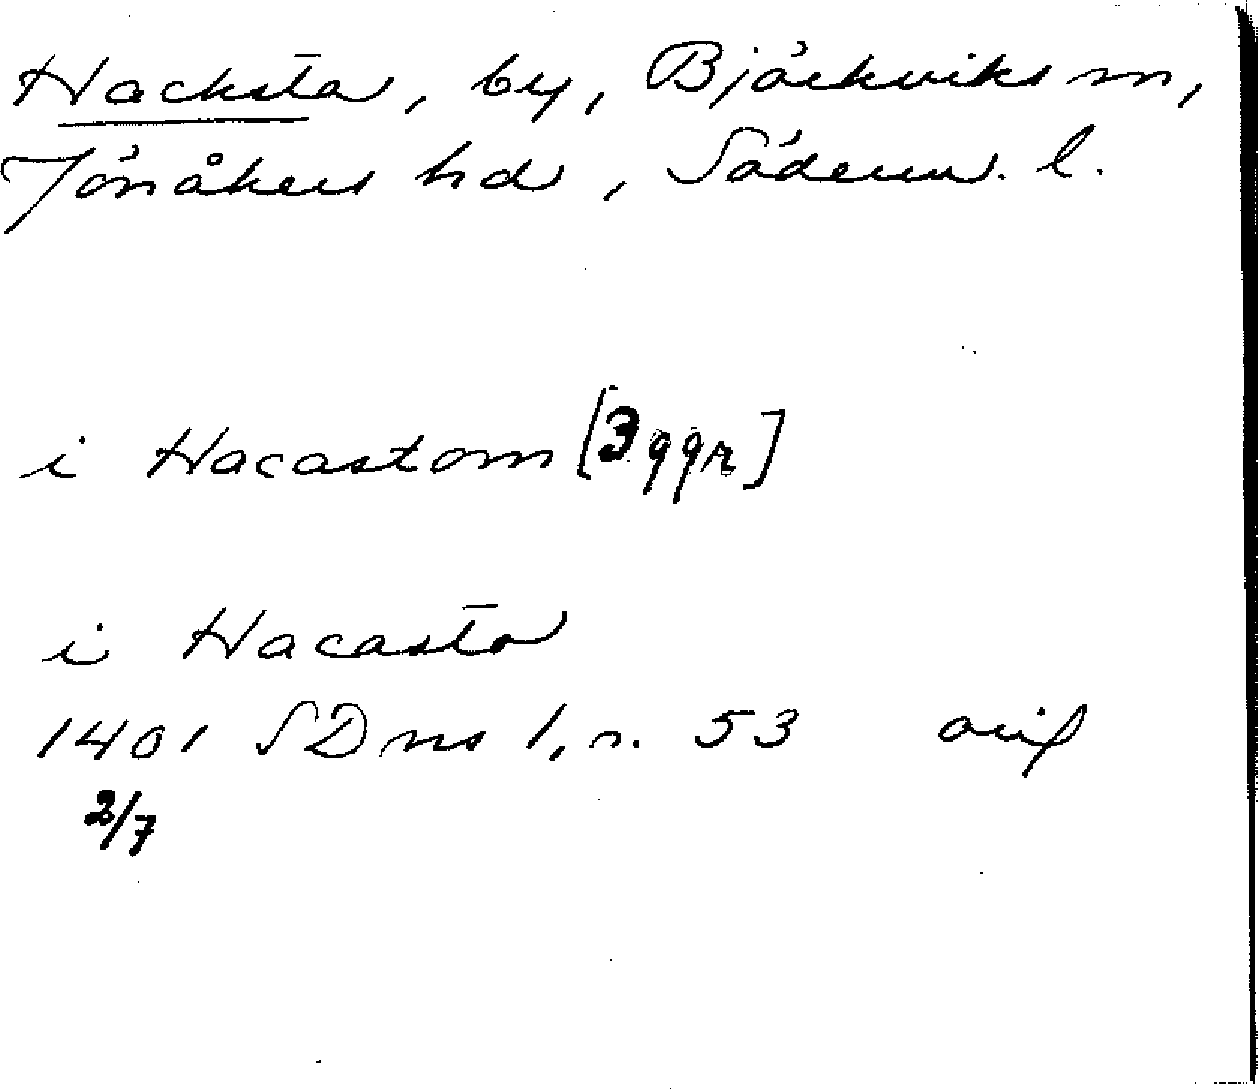 Hacksta, by, Björkviks sn,
Jönåkers hd, Söderm. l.
i Hacastom [3 ggr]
i Hacasta
1401 SDns 1, s. 53 avs
2/7